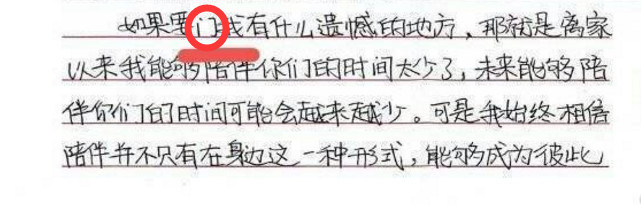 如果要门我有什么遗憾的地方，那就是离家
以来我能够陪伴你们的时间太少了，未来能够陪
伴你们的时间可能会越来越少。可是我始终相信
陪伴并不只有在身边这一种形式，能够成为彼此